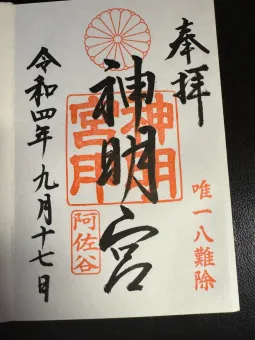 奉拝
唯一八難除
神明宮
神明宮印
阿佐谷
令和四年九月十七日